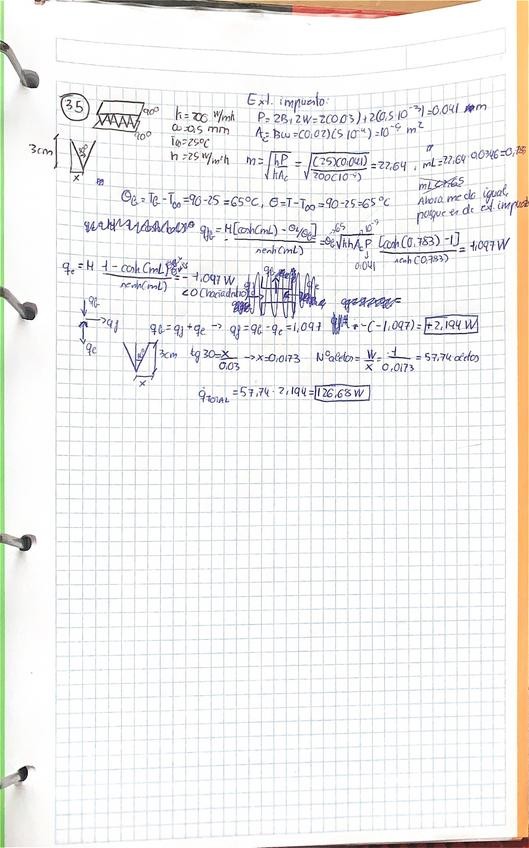 35
Ext. impuesto:
90°
90°
k = 200 W/mk
a = 0,5 mm
T∞ = 25°C
h = 25 W/m²k
P = 2B + 2W = 2(0.03) + 2(0,5·10⁻³) = 0.041 m
Ac = BW = (0,02)(5·10⁻⁴) = 10⁻⁵ m²
3cm
x
m = √(hP/kAc) = √((25)(0.041)/200(10⁻⁵)) = 22,64, mL = 22,64·0,0346 = 0,783
Ahora me da igual,
porque es de ext. impuesto
θb = Tb - T∞ = 90 - 25 = 65°C, θ = T - T∞ = 90 - 25 = 65°C
qb = M[cosh(mL) - θL/θb]/senh(mL) = θb√(hkAcP) [cosh(0.783) - 1]/senh(0.783) = 1,097 W
65
10⁻⁵
0.041
qe = M (1 - cosh(mL))/senh(mL) = -1,097 W
<0 (hacia dentro)
qb
→ qf
qe
qb = qf + qe → qf = qb - qe = 1,097 - (-1,097) = +2,194 W
3cm
x
tg30 = x/0.03 → x = 0.0173
Nº aletas = W/x = 1/0,0173 = 57,74 aletas
qTOTAL = 57,74 · 2,194 = 126,68 W